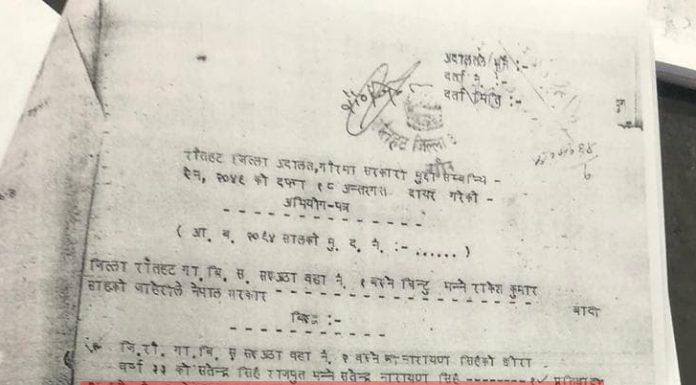 अदालतले भर्ने :-
दर्ता नं. :-
दर्ता मिति :-
रौतहट जिल्ला
रौतहट जिल्ला अदालत, गौरमा सरकारी मुद्दा सम्बन्धि -
ऐन, २०४९ को दफा १८ अन्तरगत दायर गरेको -
अभियोग-पत्र
( आ. ब. २०६४ सालको मु. द. नं. :- ...... )
जिल्ला रौतहट गा. बि. स. सरुअठा वडा नं. १ बस्ने चिन्टु भन्ने राकेश कुमार
साहको जाहेरीले नेपाल सरकार
वादी
बिरुद्ध :-
जि. रौ. गा. बि. स. सरुअठा वडा नं. १ बस्ने नारायण सिंहको छोरा
वर्ष ३३ को सतेन्द्र सिंह राजपुत भन्ने सतेन्द्र नारायण सिंह